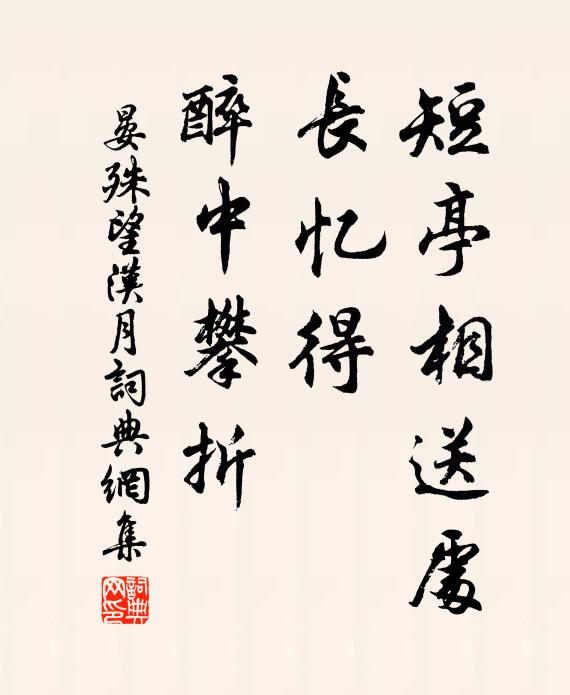 短亭相送處
長忆得
醉中攀折
晏殊望漢月詞典網集
詞典网印